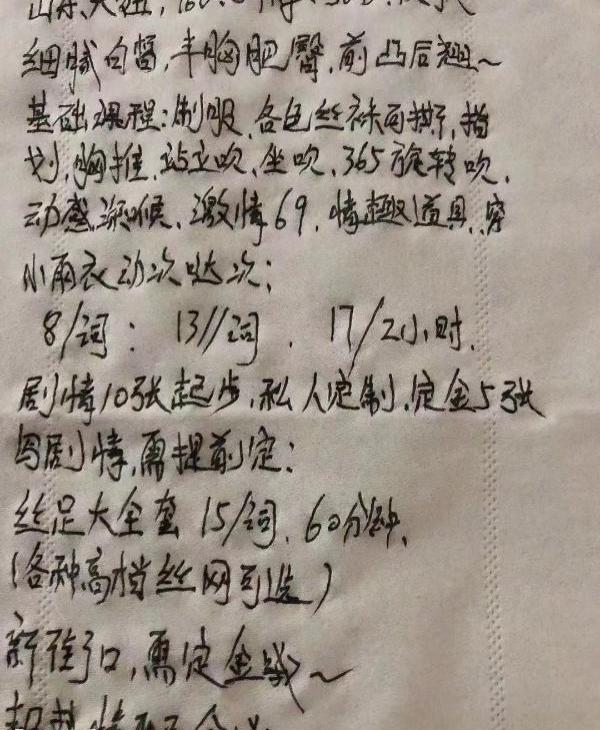 细腻白皙,丰胸肥臀,前凸后翘~
基础课程:制服,各色丝袜可撕,指
划,胸推,站立吹,坐吹,365旋转吹,
动感深喉,激情69,情趣道具,穿
小雨衣动次哒次;
8/词: 13//词. 17/2小时.
剧情10张起步,私人定制,定金5张
写剧情,需提前定:
丝足大全套 15/词. 60分钟.
(各种高档丝网可选)
新街口,需定金